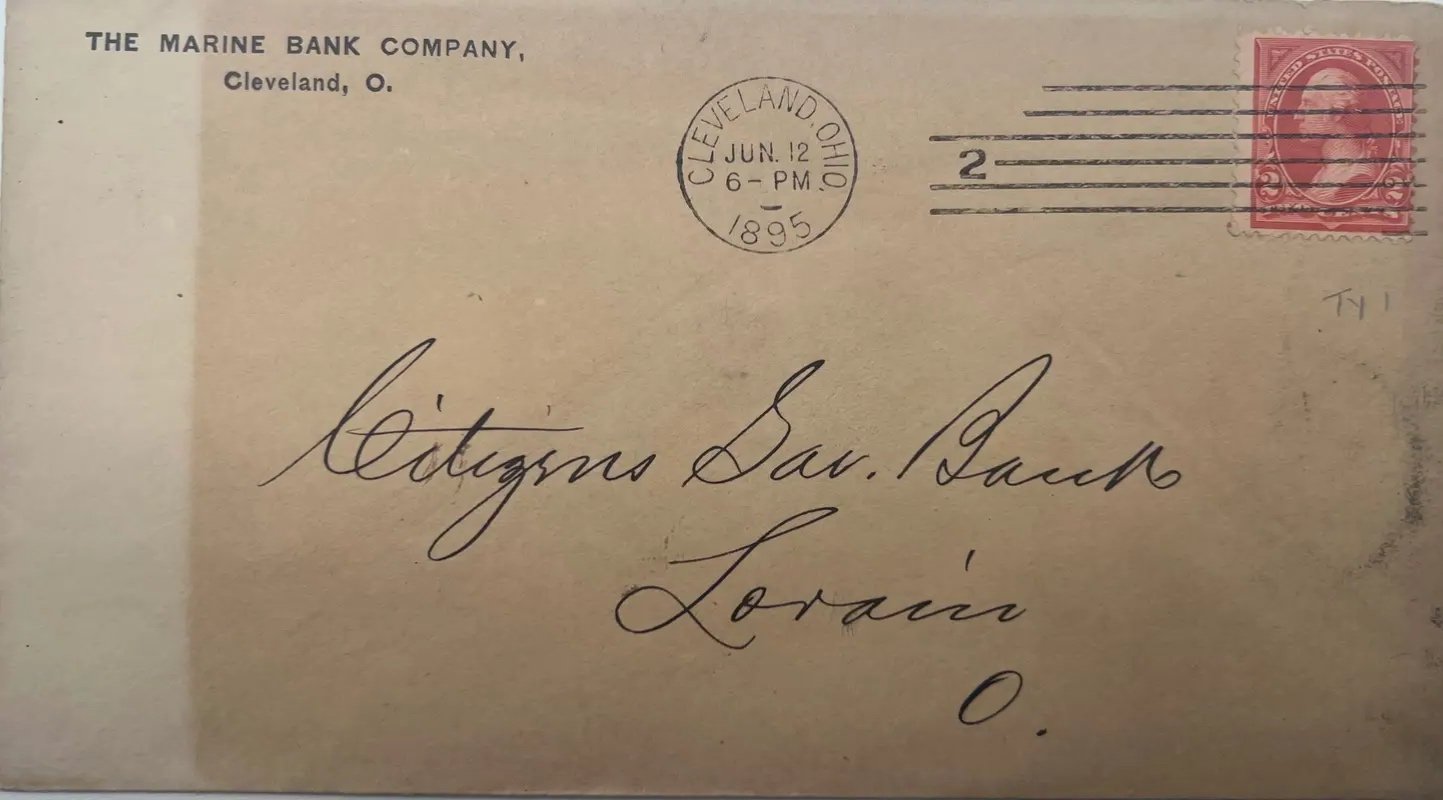 THE MARINE BANK COMPANY,
Cleveland, O.
CLEVELAND, OHIO.
JUN. 12
6 - PM
1895
2
UNITED STATES POSTAGE
2 2
Ty 1
Citizens Sav. Bank
Lorain
O.